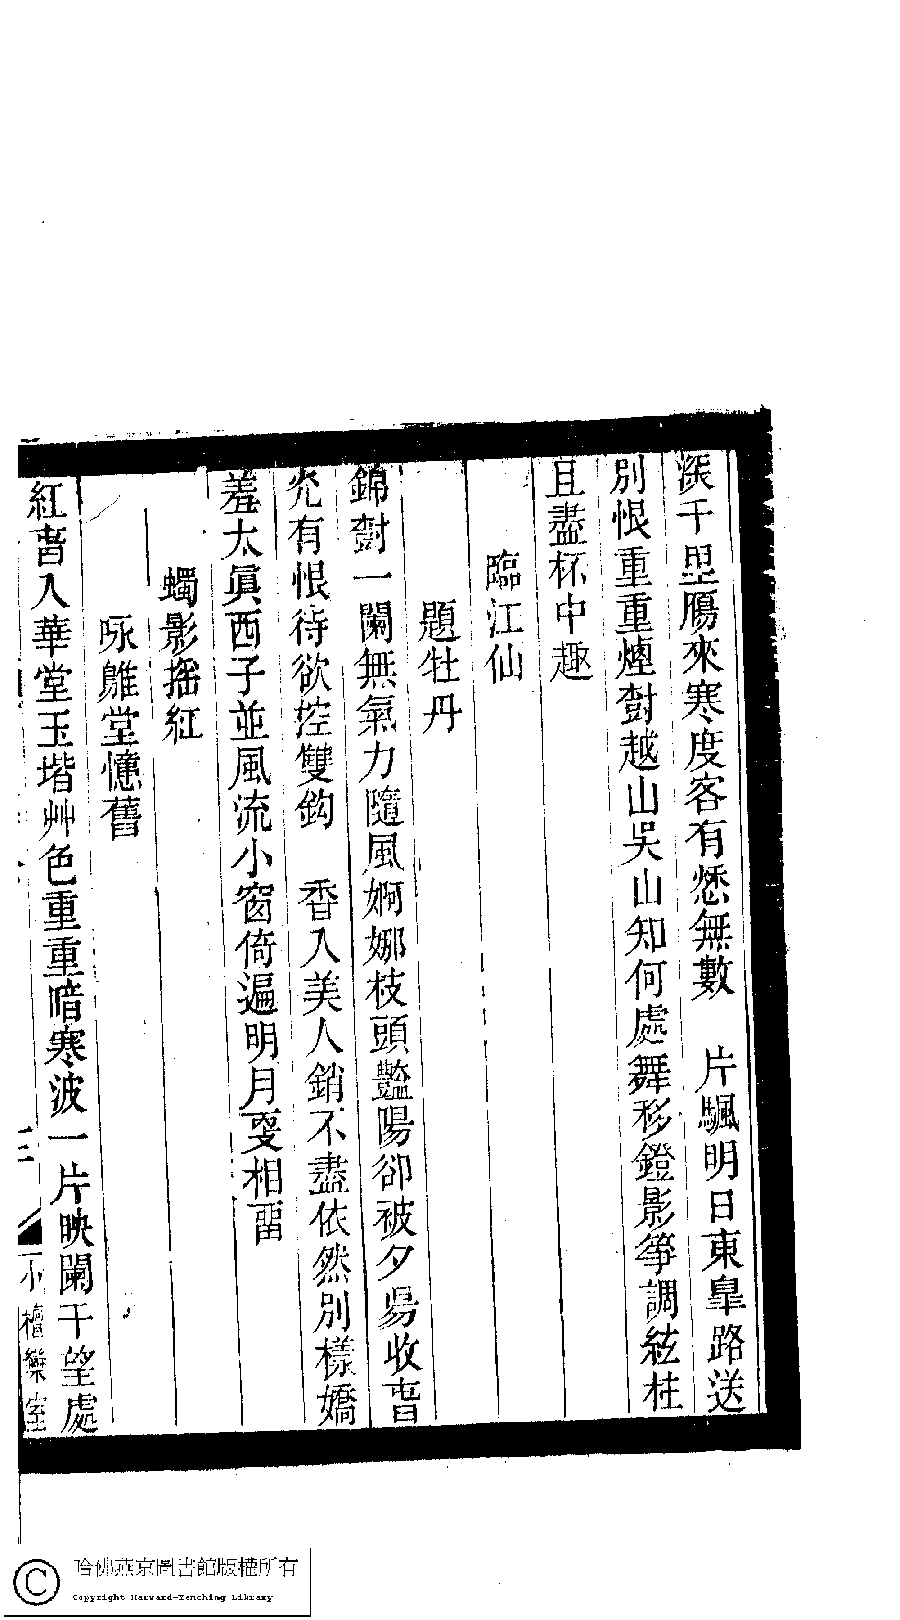 深千里鴈來寒度客有愁無數　片颿明日東皐路送
別恨重重煙樹越山吳山知何處舞移鐙影箏調絃柱
且盡杯中趣
臨江仙
題牡丹
錦樹一闌無氣力隨風婀娜枝頭豔陽卻被夕易收春
光有恨待欲控雙鈎　香入美人銷不盡依然別樣嬌
羞太眞西子並風流小窗倚遍明月㪅相畱
蠋影搖紅
咏雛堂憶舊
紅春入華堂玉堦艸色重重暗寒波一片映闌干望處
小檀欒室
哈佛燕京圖書館版權所有
Copyright Harvard-Yenching Library